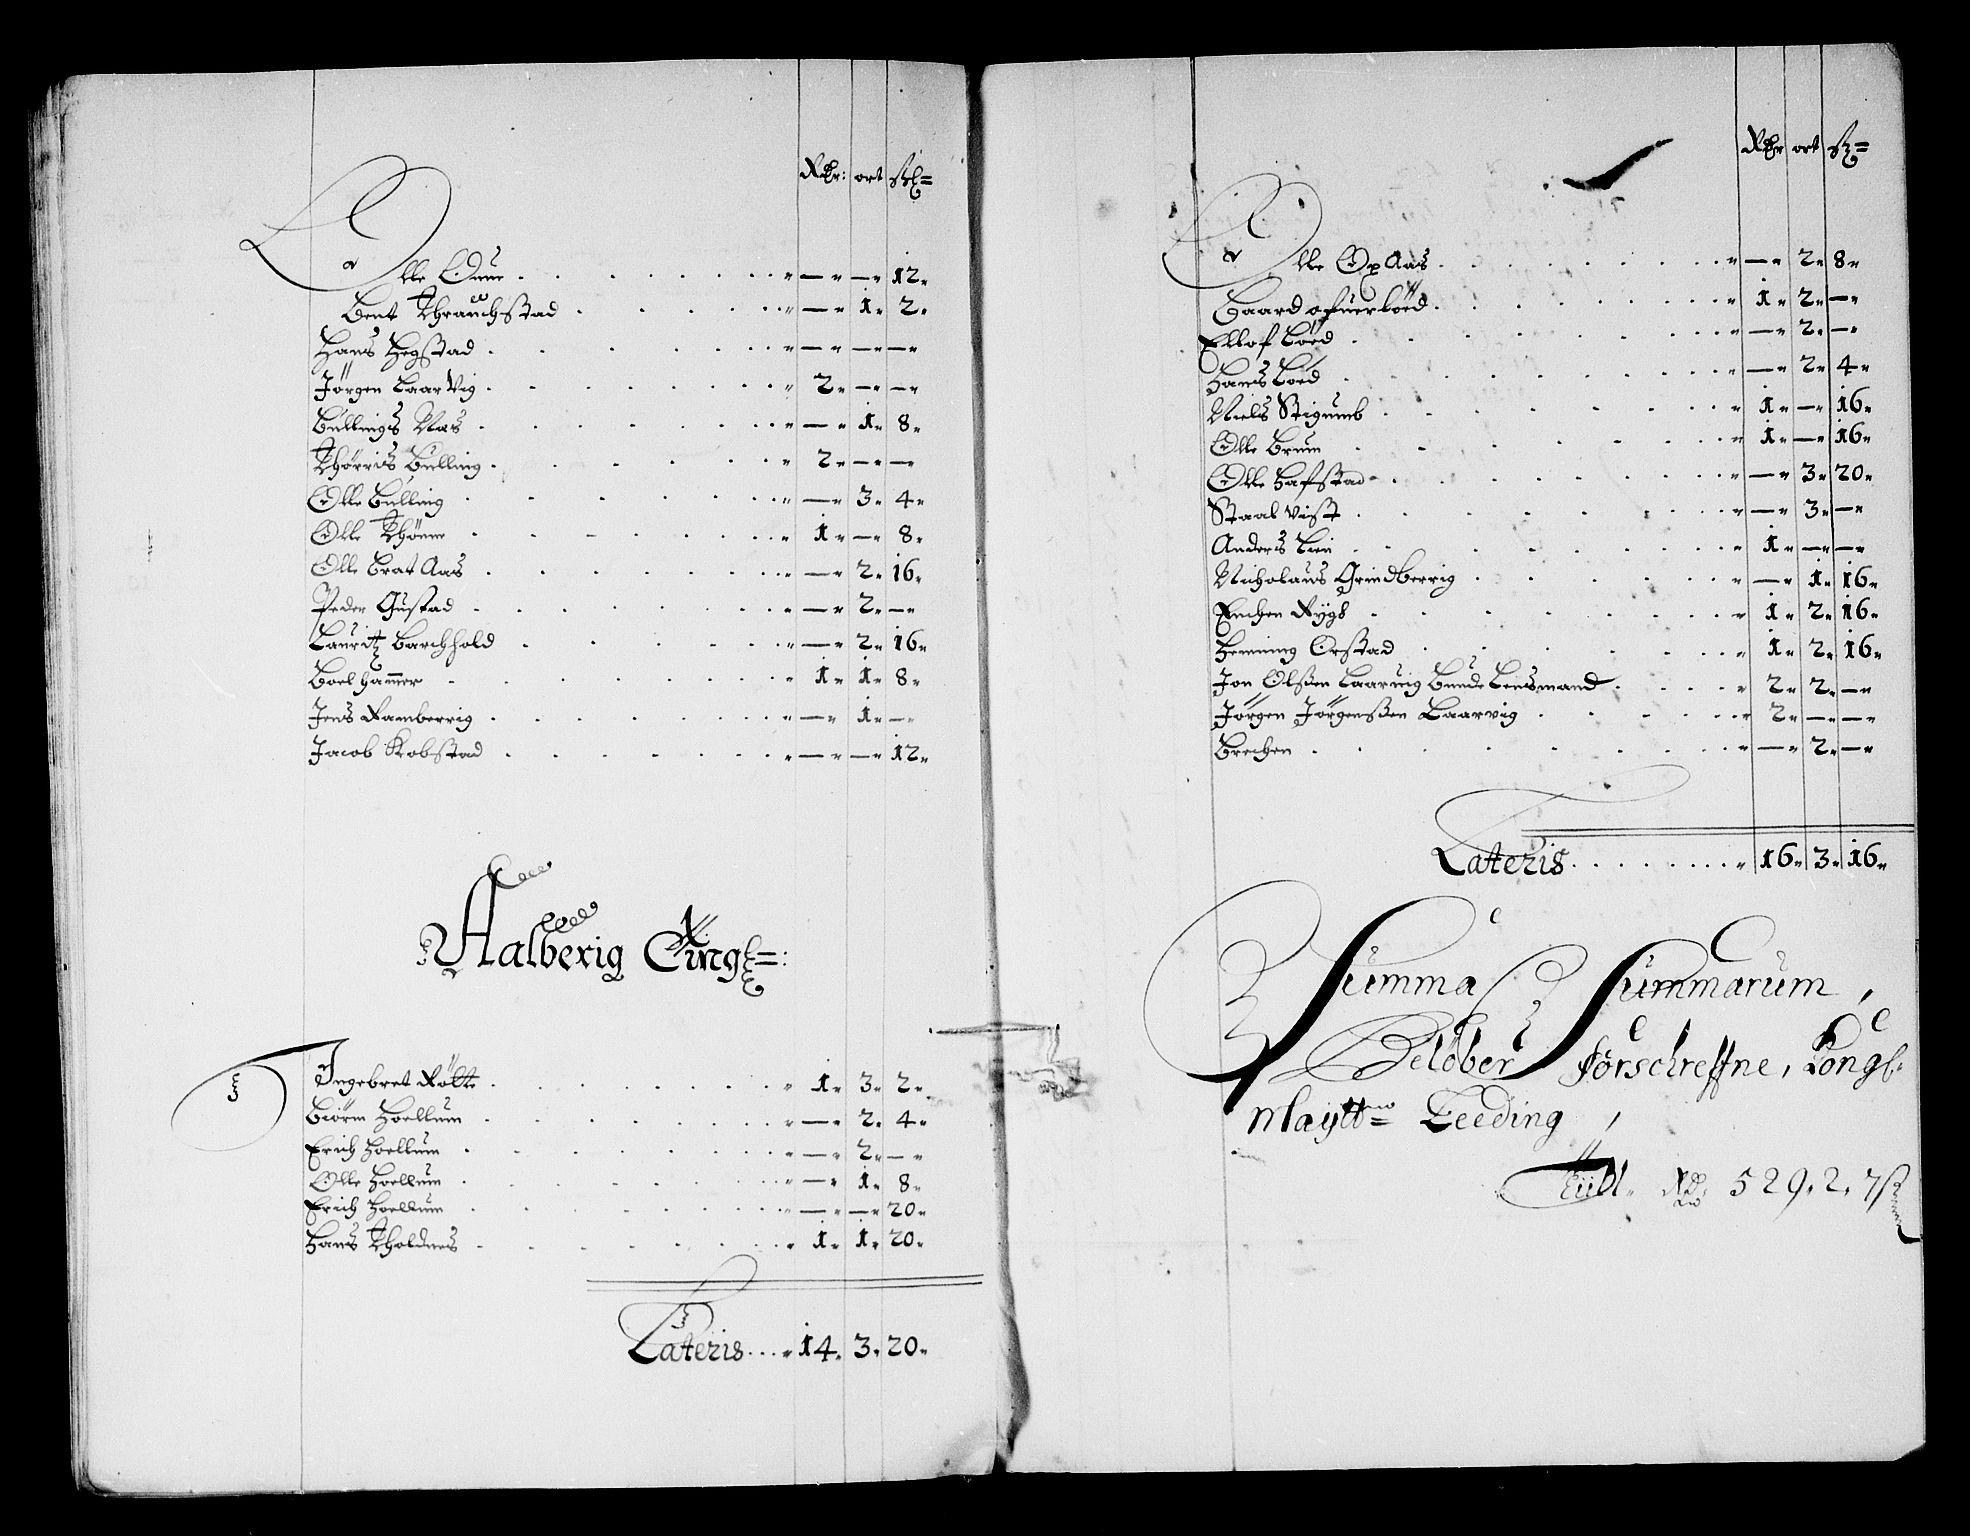 Rdr: ort sk=
Olle Quue . . . . . . . „ — „ — „ 12 „
Bent Thrauchstad . . . . . „ — „ 1 „ 2 „
Hans Hegstad . . . . . . „ — „ — „ — „
Jörgen Laarvig . . . . . . „ 2 „ — „ — „
Bullings Nas . . . . . . „ — „ 1 „ 8 „
Thörris Bulling . . . . . . „ 2 „ — „ —
Olle Bulling . . . . . . „ — „ 3 „ 4 „
Olle Thönne . . . . . . „ 1 „ — „ 8 „
Olle Brat Aas . . . . . . „ — „ 2 „ 16 „
Peder Gustad . . . . . . „ — „ 2 „ — „
Lauritz Barchhold . . . . . „ — „ 2 „ 16 „
Boel hammer . . . . . . „ 1 „ 1 „ 8 „
Jens Ramberrig . . . . . . „ — „ 1 „ —
Jacob Kobstad . . . . . . „ — „ — „ 12 „
Aalberig Ting=:
Ingebret Rölte . . . . . . „ 1 „ 3 „ 2 „
Biörn Hoellum . . . . . . „ — „ 2 „ 4 „
Erich Hoellum . . . . . . „ — „ 2 „ — „
Olle Hoellum . . . . . . „ — „ 1 „ 8 „
Erich Hoellum . . . . . . „ — „ — „ 20 „
Hans Tholdnes . . . . . . „ 1 „ 1 „ 20 „
Lateris . . . „ 14 „ 3 „ 20 „
Rdr ort sk=
Olle Opaas . . . . . . „ — „ 2 „ 8 „
Baard ofuerloed . . . . . . „ 1 „ 2 „ — „
Ellof Loed . . . . . . „ — „ 2 „ — „
Hans Loed . . . . . . „ — „ 2 „ 4 „
Niels Stigumb . . . . . . „ 1 „ — „ 16 „
Olle Brum . . . . . . „ 1 „ — „ 16 „
Olle Hafstad . . . . . . „ — „ 3 „ 20 „
Staal Vist . . . . . . „ — „ 3 „ — „
Anders Lein . . . . . . „ 1 „ — „ — „
Nicholaus Grindberrig . . . . . „ — „ 1 „ 16 „
Enchen Rygs . . . . . . „ 1 „ 2 „ 16 „
Henning Orstad . . . . . . „ 1 „ 2 „ 16 „
Jon Olssen Laarvig Bunde Lensmand . . . . „ 2 „ 2 „ — „
Jörgen Jörgenssen Laarvig . . . . . „ 2 „ — „ — „
Brechen . . . . . . „ — „ 2 „ — „
Lateris . . . . . . „ 16 „ 3 „ 16 „
Summa Summarum,
Belöber förschreffne, Kongl.
Maytt= Leeding,
Till. Rd. 529. 2. 7ß